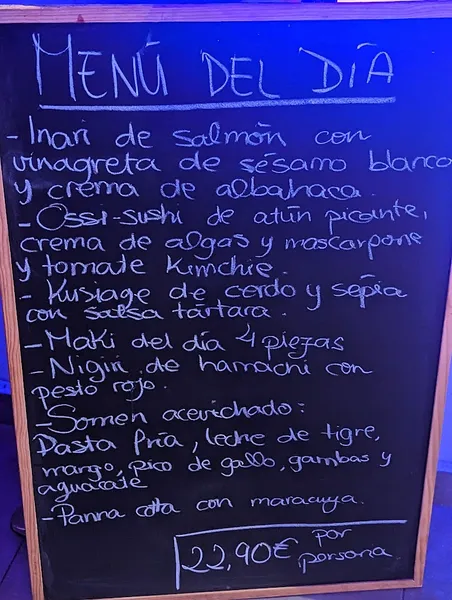 MENÚ DEL DÍA
- Inari de salmón con
vinagreta de sésamo blanco
y crema de albahaca.
- Ossi-sushi de atún picante,
crema de algas y mascarpone
y tomate Kimchie.
- Kusiage de cerdo y sépia
con salsa tártara.
- Maki del día 4 piezas
- Nigiri de hamachi con
pesto rojo.
- Somen acevichado:
Pasta fría, leche de tigre,
mango, pico de gallo, gambas y
aguacate
- Panna cotta con maracuya.
22,90€ por
persona.